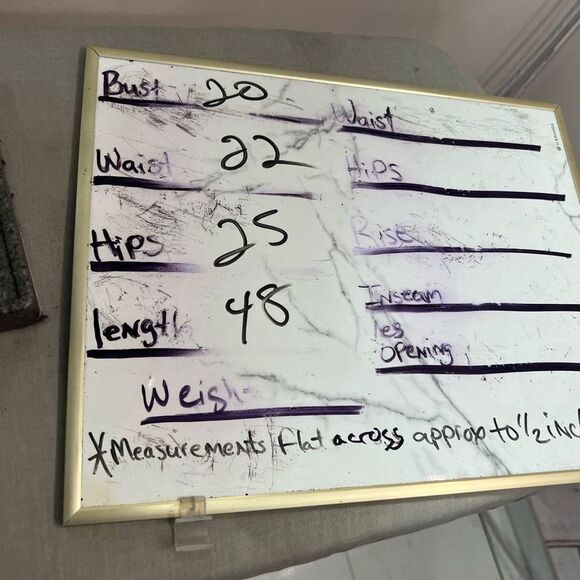 Bust 20
Waist 22
Hips 25
length 48
Weigh
Waist
Hips
Rise
Inseam
leg
opening
*Measurements flat across approp to 1/2 inc